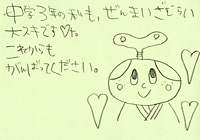 中学3年の私も、ぜんまいざむらい
大スキです♡。
これからも
がんばってください。